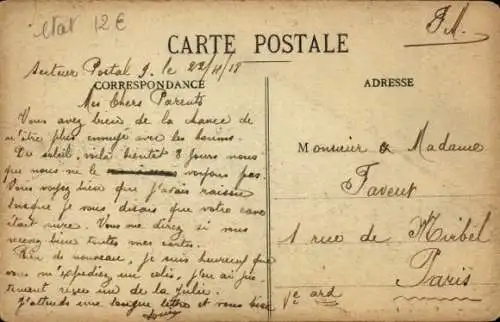 état 12 €
F.M.
CARTE POSTALE
Secteur Postal 9. le 22/4/18
CORRESPONDANCE
ADRESSE
Mes Chers Parents
Vous avez bien de la chance de
n'être plus ennuyé avec les
Du soleil, voilà bientôt 8 jours nous
que nous ne le voyons pas.
Vous voyez bien que j'avais raison
lorsque je vous disais que votre cave
était sure. Vous me direz si vous
recevez bien toutes mes cartes.
Rien de nouveau, je suis heureux que
vous m'expédiez un colis, j'en ai
reçu un de la Julie.
J'attends une longue lettre et vous bise
Monsieur & Madame
Favent
1 rue de Mirbel
Paris
Ve ard